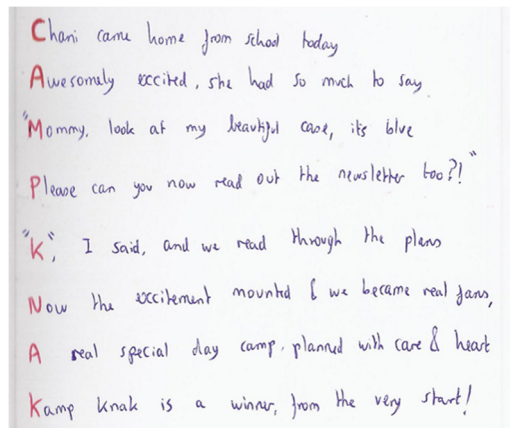 Chani came home from school today
Awesomely excited, she had so much to say
"Mommy, look at my beautiful case, it's blue
Please can you now read out the newsletter too?!"
"K", I said, and we read through the plans
Now the excitement mounted & we became real fans,
A real special day camp, planned with care & heart
Kamp Knak is a winner, from the very start!